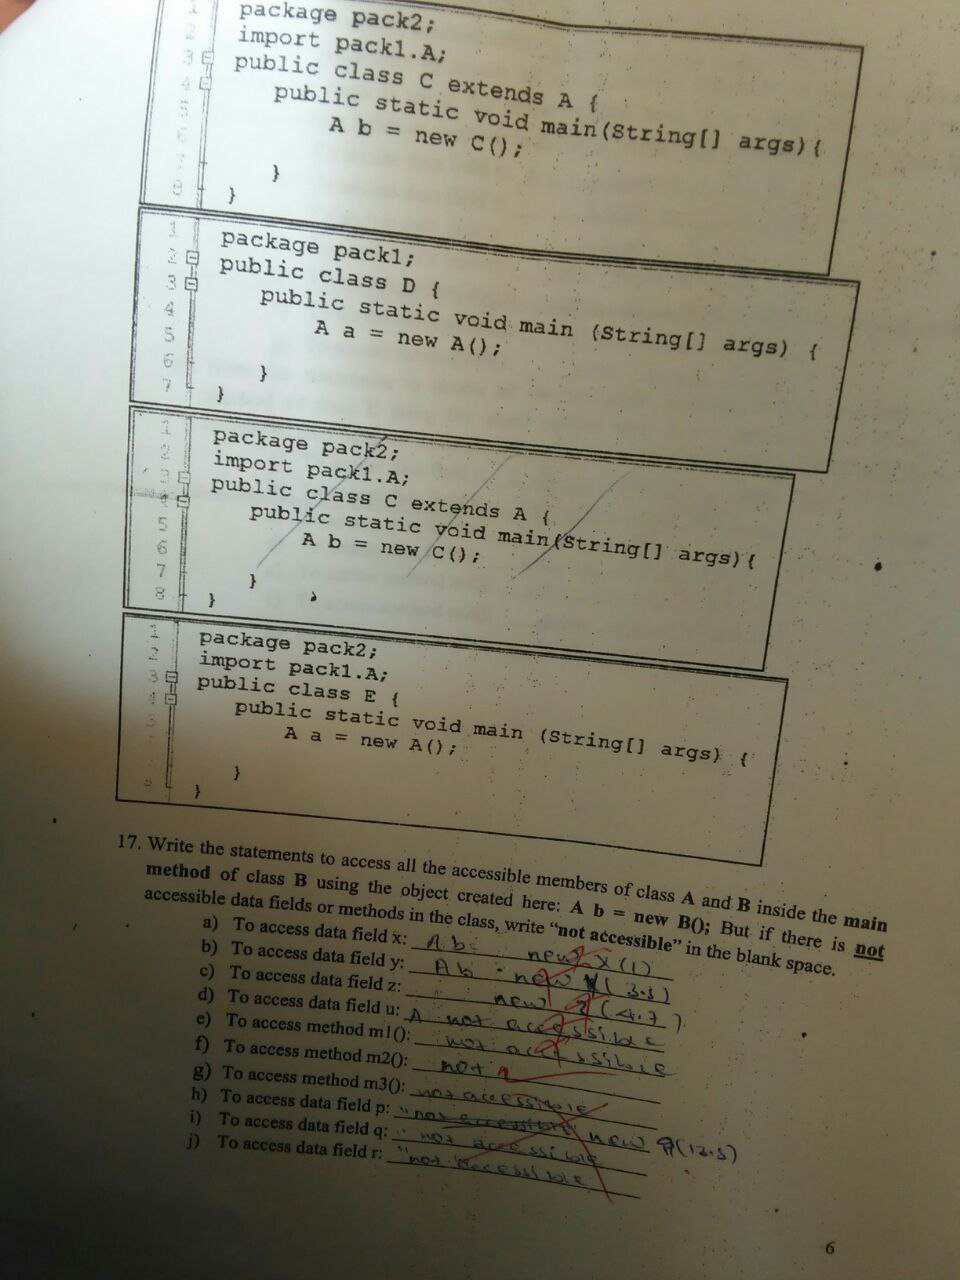 1 package pack2;
2 import pack1.A;
3 public class C extends A {
4 public static void main(String[] args){
5 A b = new C();
6
7 }
8 }
1 package pack1;
2 public class D {
3 public static void main (String[] args) {
4 A a = new A();
5
6 }
7 }
1 package pack2;
2 import pack1.A;
3 public class C extends A {
4 public static void main(String[] args){
5 A b = new C();
6
7 }
8 }
1 package pack2;
2 import pack1.A;
3 public class E {
4 public static void main (String[] args) {
5 A a = new A();
}
8 }
17. Write the statements to access all the accessible members of class A and B inside the main
method of class B using the object created here: A b = new B(); But if there is not
accessible data fields or methods in the class, write “not accessible” in the blank space.
a) To access data field x: A b= new X(1)
b) To access data field y: A b = new Y(3.5)
c) To access data field z: new Z(4.7)
d) To access data field u: A not accessible
e) To access method m1(): not accessible
f) To access method m2(): not
g) To access method m3(): not accessible
h) To access data field p: "not accessible" new P(12.5)
i) To access data field q: "not accessible
j) To access data field r: "not accessible
6